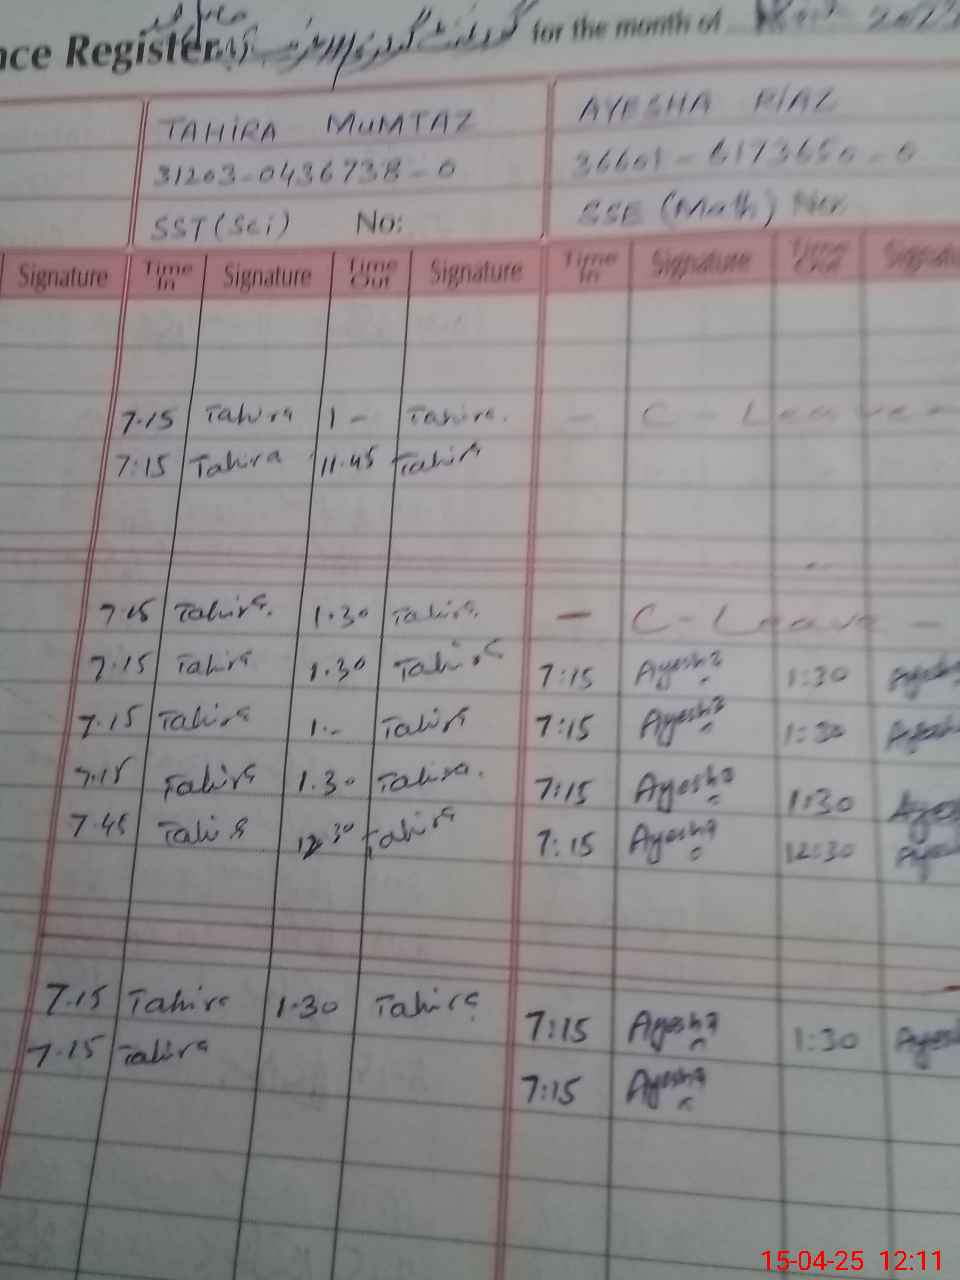 nce Register گورنمنٹ گرلز for the month of
TAHIRA MUMTAZ AYESHA RIAZ
31203-0436738-0 36601-6173650-0
SST (Sci) No: SSE (Math) No:
Signature Time In Signature Time Out Signature Time In Signature Time Out Signatu
7.15 Tahira 1 - Tahira. - C - Leave -
7:15 Tahira 11.45 Tahira
7.15 Tahira. 1.30 Tahira. - C - Leave -
7.15 Tahira 1.30 Tahira 7:15 Ayesha 1:30 Ayesha
7.15 Tahira 1.- Tahira 7:15 Ayesha 1:30 Ayesha
7.15 Tahira 1.30 Tahira. 7:15 Ayesha 1:30 Ayes
7.45 Tahira 12.30 Tahira 7:15 Ayesha 12:30 Ayes
7.15 Tahira 1.30 Tahira 7:15 Ayesha 1:30 Ayes
7.15 Tahira 7:15 Ayesha
15-04-25 12:11